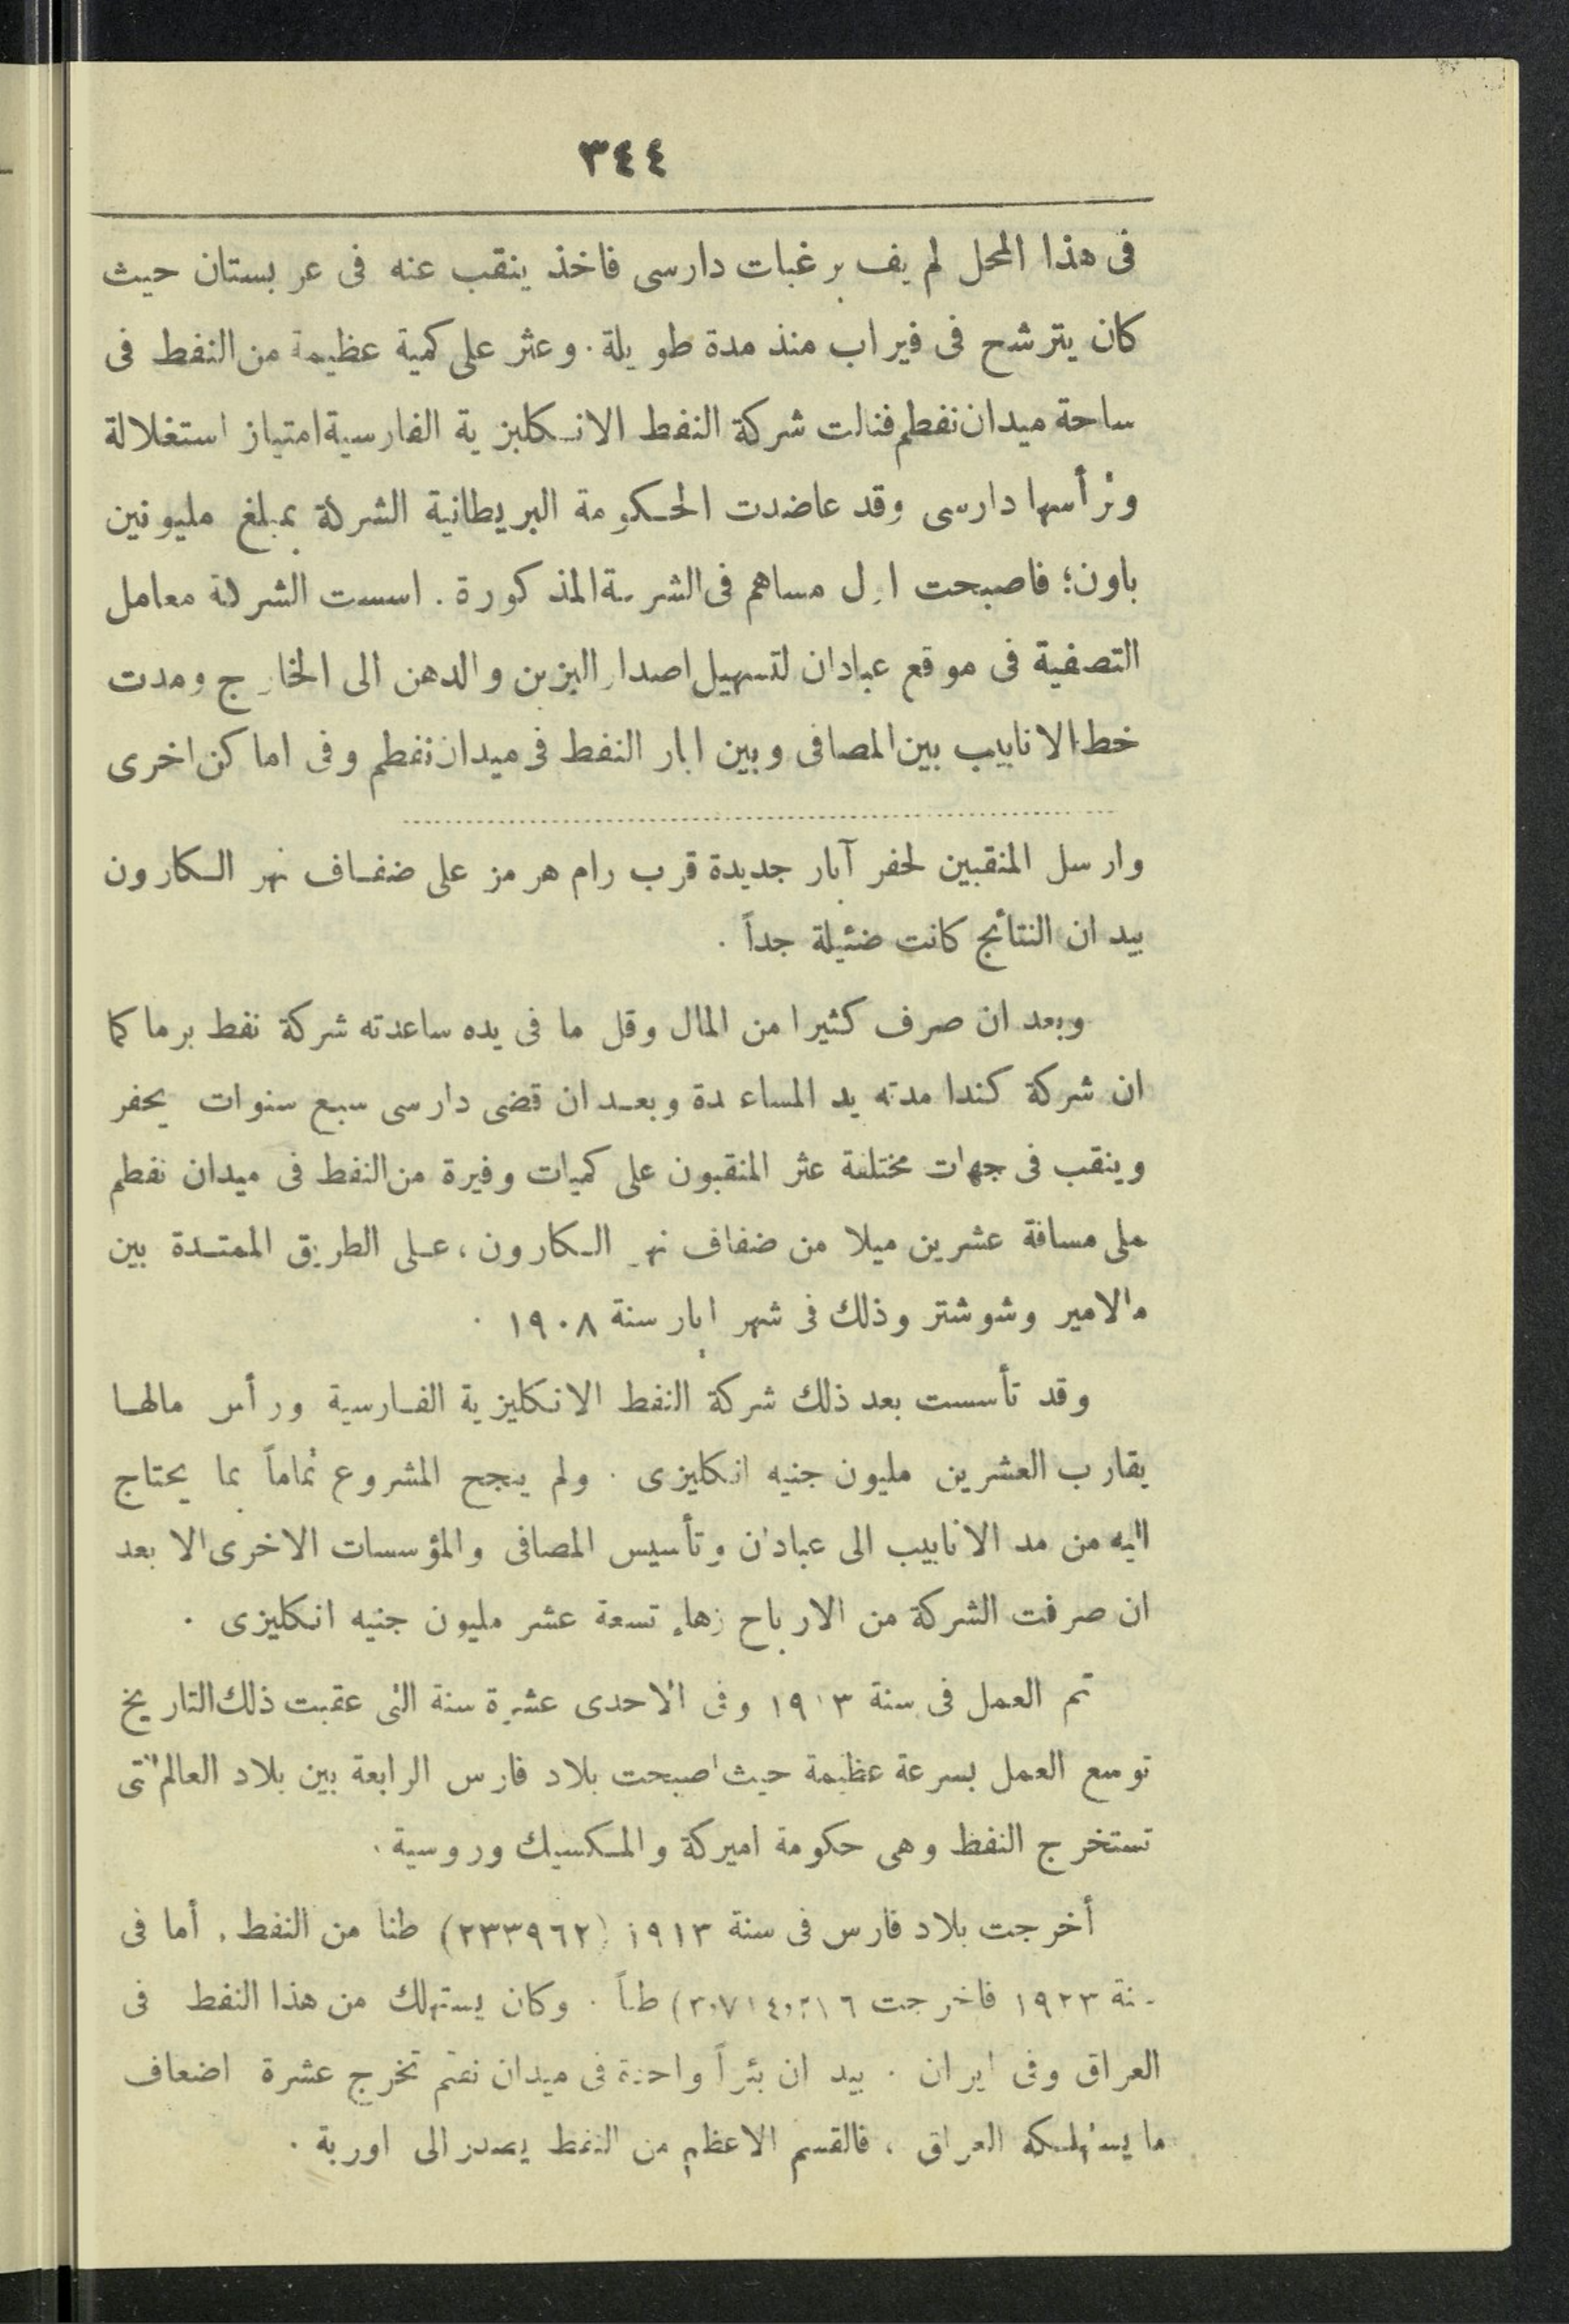 ٣٤٤
فى هذا المحل لم يف برغبات دارسى فاخذ ينقب عنه فى عربستان حيث
كان يترشح فى فيراب منذ مدة طويلة . وعثر على كمية عظيمة من النفط فى
ساحة ميدان نفطم فنالت شركة النفط الانكليزية الفارسية امتياز استغلالة
وترأسها دارسى وقد عاضدت الحكومة البريطانية الشركة بمبلغ مليونين
باون؛ فاصبحت اول مساهم فى الشركة المذكورة . اسست الشركة معامل
التصفية فى موقع عبادان لتسهيل اصدار البزين والدهن الى الخارج ومدت
خط الانابيب بين المصافى وبين ابار النفط فى ميدان نفطم وفى اماكن اخرى
وارسل المنقبين لحفر آبار جديدة قرب رام هرمز على ضفاف نهر الكارون
بيد ان النتائج كانت ضئيلة جداً .
وبعد ان صرف كثيرا من المال وقل ما فى يده ساعدته شركة نفط برما كما
ان شركة كندا مدته يد المساعدة وبعد ان قضى دارسى سبع سنوات يحفر
وينقب فى جهات مختلفة عثر المنقبون على كميات وفيرة من النفط فى ميدان نفطم
على مسافة عشرين ميلا من ضفاف نهر الكارون ، على الطريق الممتدة بين
مالامير وشوشتر وذلك فى شهر ايار سنة ١٩٠٨ .
وقد تأسست بعد ذلك شركة النفط الانكليزية الفارسية ورأس مالها
يقارب العشرين مليون جنيه انكليزى . ولم ينجح المشروع تماماً بما يحتاج
اليه من مد الانابيب الى عبادان وتأسيس المصافى والمؤسسات الاخرى الا بعد
ان صرفت الشركة من الارباح زهاء تسعة عشر مليون جنيه انكليزى .
تم العمل فى سنة ١٩١٣ وفى الاحدى عشرة سنة التى عقبت ذلك التاريخ
توسع العمل بسرعة عظيمة حيث اصبحت بلاد فارس الرابعة بين بلاد العالم التى
تستخرج النفط وهى حكومة اميركة والمكسيك وروسية .
أخرجت بلاد فارس فى سنة ١٩١٣ (٢٣٣٩٦٢) طنا من النفط . أما فى
سنة ١٩٢٣ فاخرجت طناً . وكان يستهلك من هذا النفط فى
العراق وفى ايران . بيد ان بئراً واحدة فى ميدان تخرج عشرة اضعاف
ما يستهلكه العراق ، فالقسم الاعظم من النفط يصدر الى اوربة .